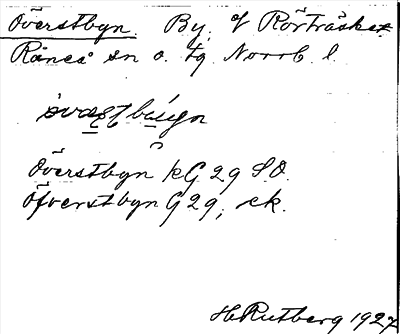 Överstbyn. By, vf Rörträsket
Råneå sn o. tg Norrb. l.
Överstbyn kG 29 S.O.
Öfverstbyn G 29, ek.
H. Rutberg 1927